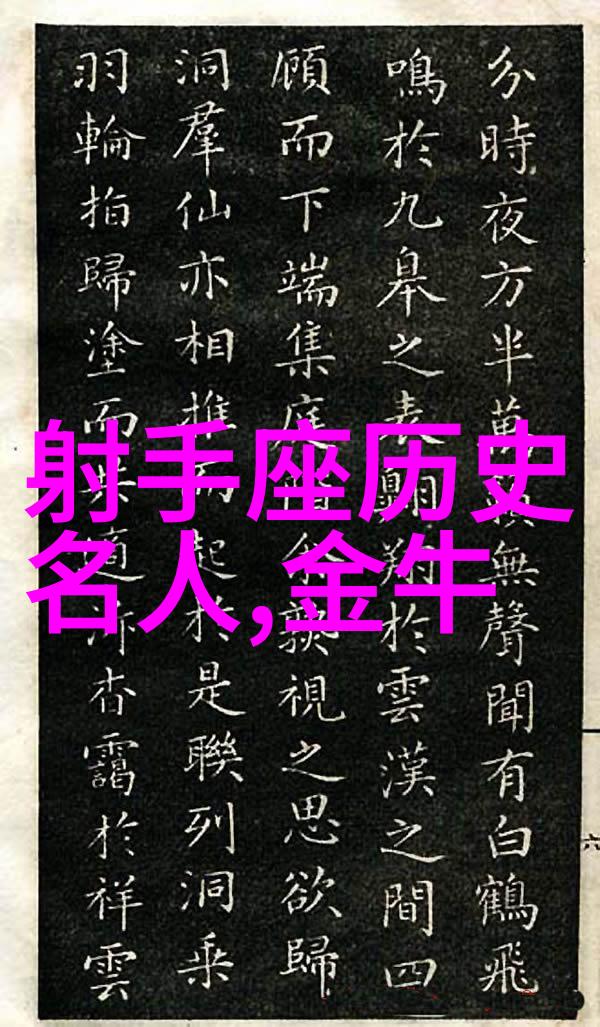 分時夜方半萬無聲聞有白鶴飛
鳴於九皋之表翔於雲漢之間四
顧而下端集庭視之思欲歸
洞羣仙亦相推而起於是聯列洞乘
羽輪指歸塗而杳靄於祥雲
射手座历史
名人,金牛
六